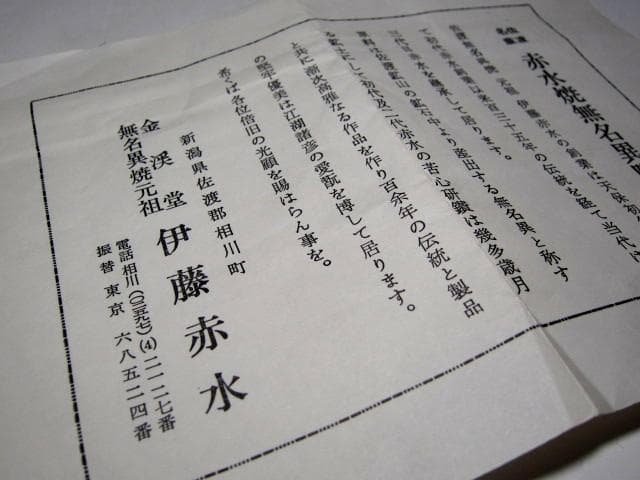 赤水焼無名異
伊藤赤水の創業は天保初
以来百三十五年の伝統を経て当代は
赤水を継承して居ります。
佐渡鉱山の鉱石中より選出する無名異と称す
初代及二代赤水の苦心研鑽は幾多歳月
と共に漸次高雅なる作品を作り百余年の伝統と製品
の堅牢優美は江湖諸彦の愛翫を博して居ります。
希くば各位倍旧の光顧を賜はらん事を。
新潟県佐渡郡相川町
金渓堂
無名異焼元祖
伊藤赤水
電話相川(〇二五九七)(4)二一二七番
振替東京六八五二四番